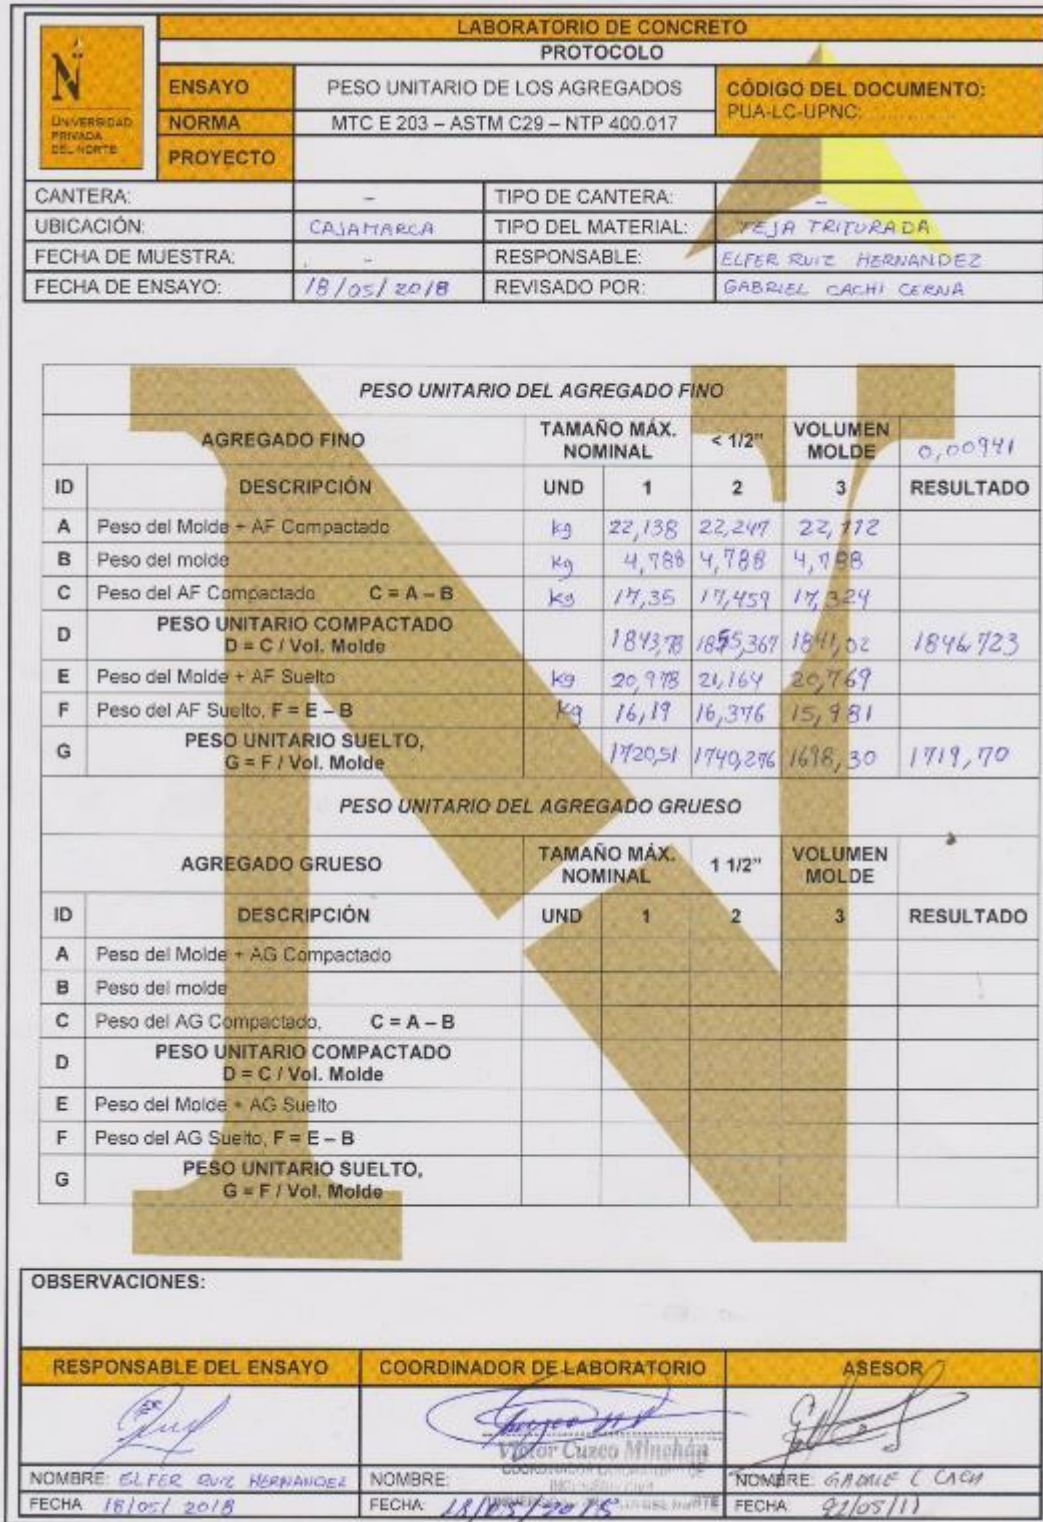 LABORATORIO DE CONCRETO
PROTOCOLO
N
UNIVERSIDAD
PRIVADA
DEL NORTE
ENSAYO PESO UNITARIO DE LOS AGREGADOS CÓDIGO DEL DOCUMENTO:
NORMA MTC E 203 – ASTM C29 – NTP 400.017 PUA-LC-UPNC:..............
PROYECTO
CANTERA: – TIPO DE CANTERA: –
UBICACIÓN: CAJAMARCA TIPO DEL MATERIAL: TEJA TRITURADA
FECHA DE MUESTRA: – RESPONSABLE: ELFER RUIZ HERNANDEZ
FECHA DE ENSAYO: 18/05/2018 REVISADO POR: GABRIEL CACHI CERNA
PESO UNITARIO DEL AGREGADO FINO
AGREGADO FINO TAMAÑO MÁX. NOMINAL < 1/2" VOLUMEN MOLDE 0,00941
ID DESCRIPCIÓN UND 1 2 3 RESULTADO
A Peso del Molde + AF Compactado kg 22,138 22,247 22,112
B Peso del molde kg 4,788 4,788 4,788
C Peso del AF Compactado C = A – B kg 17,35 17,459 17,324
D PESO UNITARIO COMPACTADO
D = C / Vol. Molde 1843,78 1855,367 1841,02 1846,723
E Peso del Molde + AF Suelto kg 20,978 21,164 20,769
F Peso del AF Suelto, F = E – B kg 16,19 16,376 15,981
G PESO UNITARIO SUELTO,
G = F / Vol. Molde 1720,51 1740,276 1698,30 1719,70
PESO UNITARIO DEL AGREGADO GRUESO
AGREGADO GRUESO TAMAÑO MÁX. NOMINAL 1 1/2" VOLUMEN MOLDE
ID DESCRIPCIÓN UND 1 2 3 RESULTADO
A Peso del Molde + AG Compactado
B Peso del molde
C Peso del AG Compactado, C = A – B
D PESO UNITARIO COMPACTADO
D = C / Vol. Molde
E Peso del Molde + AG Suelto
F Peso del AG Suelto, F = E – B
G PESO UNITARIO SUELTO,
G = F / Vol. Molde
OBSERVACIONES:
RESPONSABLE DEL ENSAYO COORDINADOR DE LABORATORIO ASESOR
Victor Cuzco Minchán
NOMBRE: ELFER RUIZ HERNANDEZ NOMBRE: NOMBRE: GABRIEL CACHI
FECHA 18/05/2018 FECHA: 18/05/2018 FECHA: